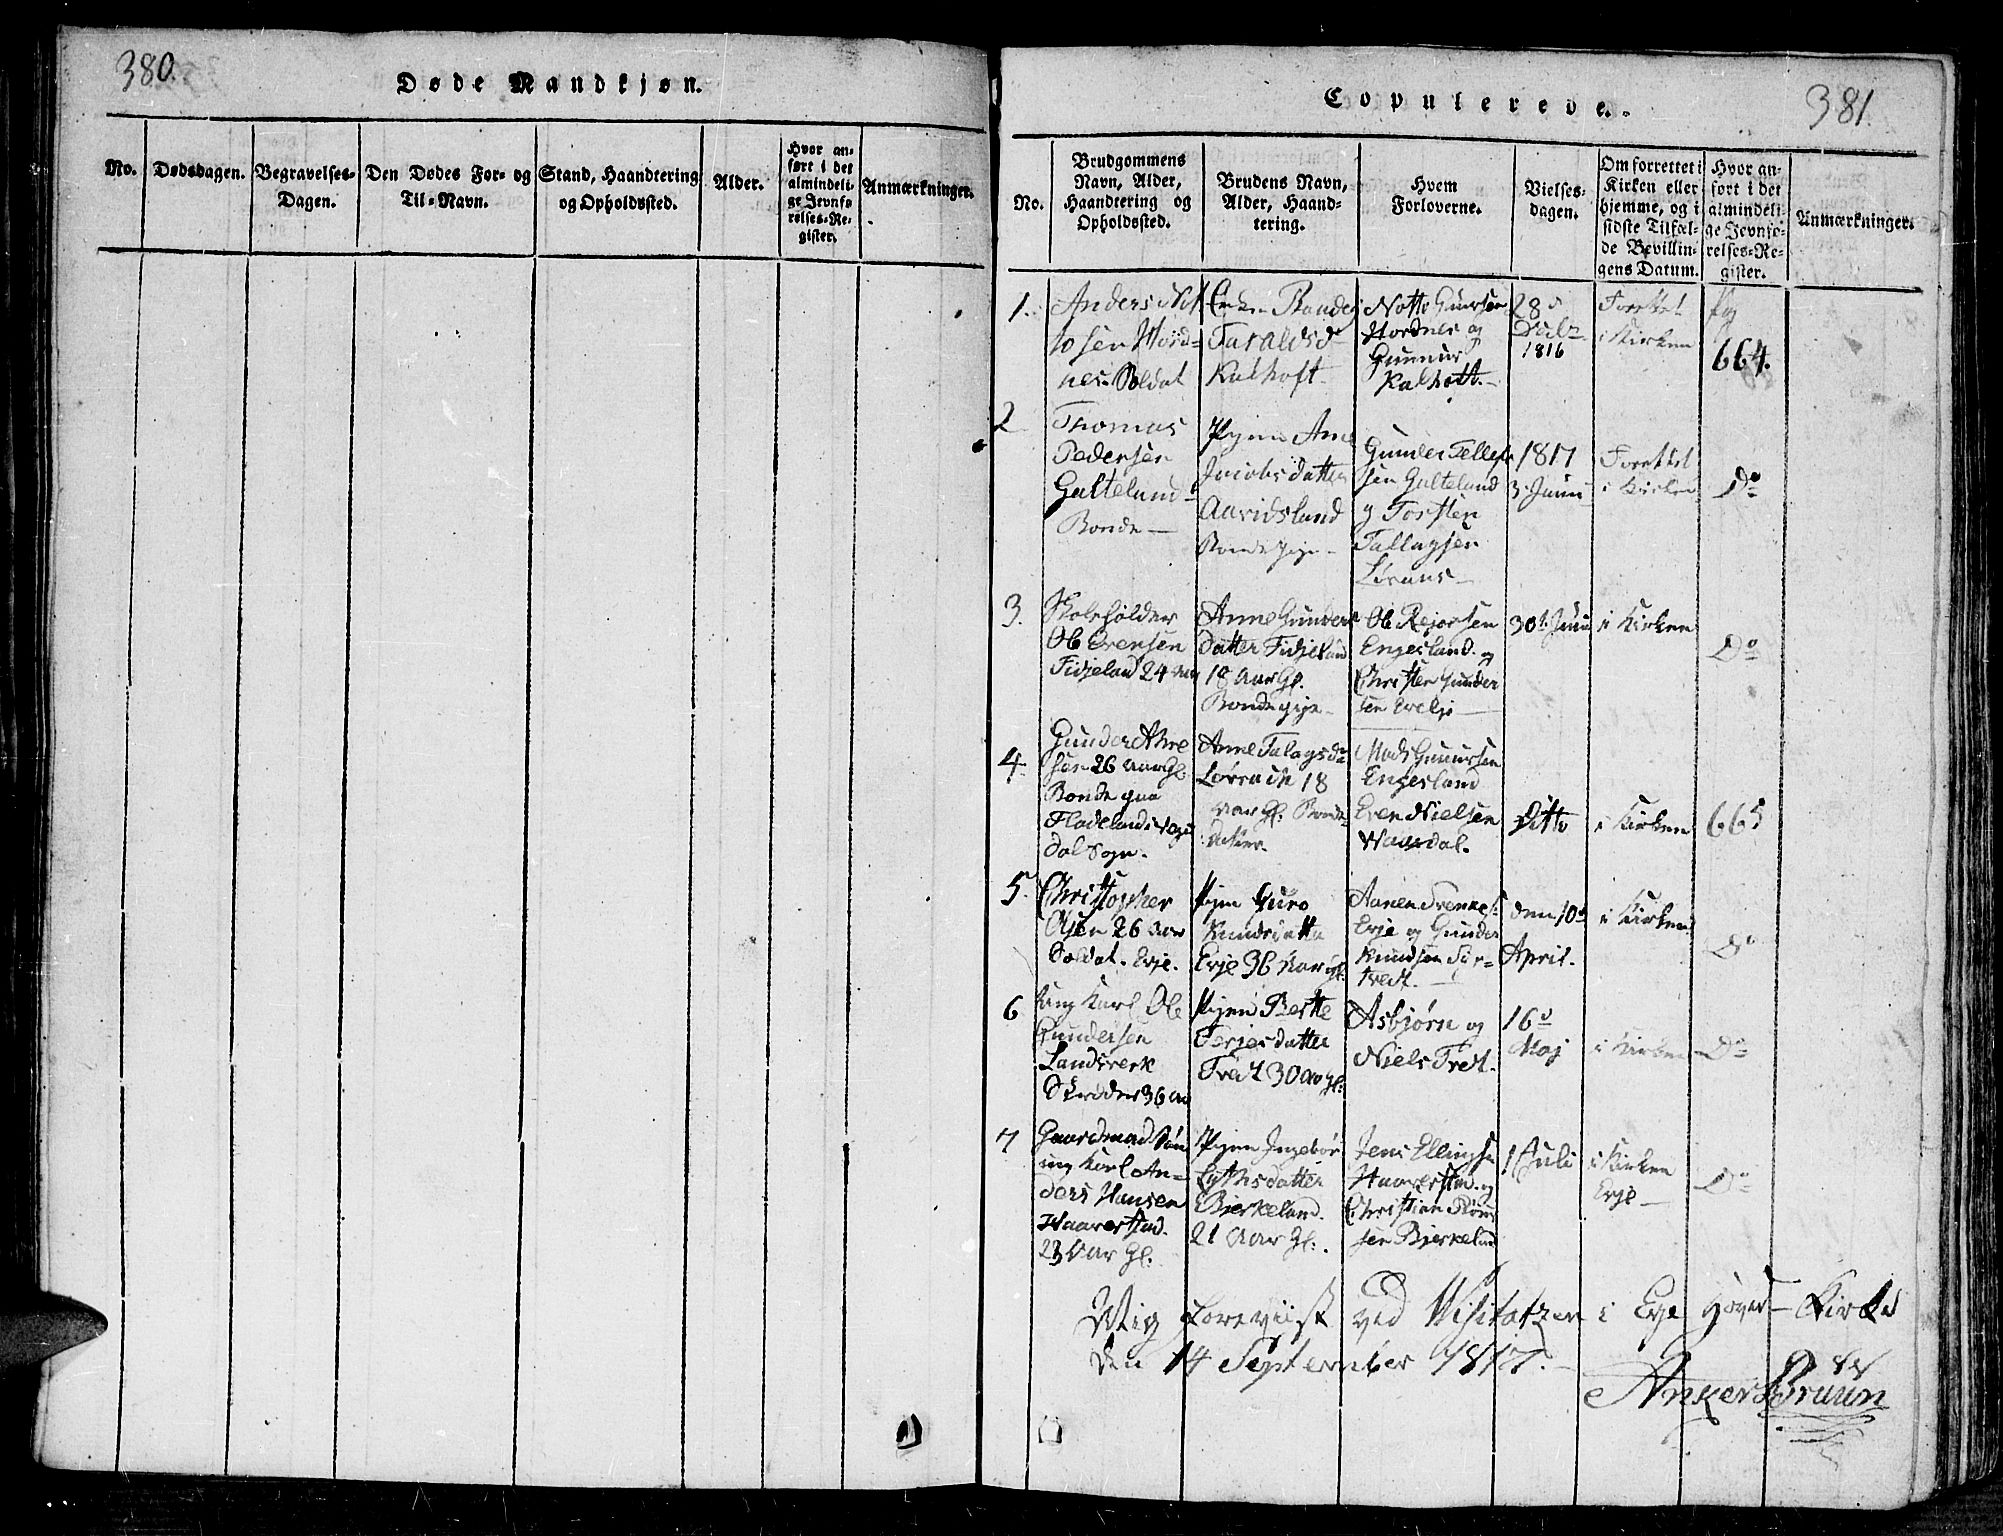 380.
Døde Mandkjøn.
No.
Dødsdagen.
Begravelses-
Dagen.
Den Dødes For- og
Til-Navn.
Stand, Haandtering
og Opholdssted.
Alder.
Hvor an-
ført i det
almindeli-
ge Jevnfø-
relses-Re-
gister.
Anmærkninger.
Copulerede.
381.
No.
Brudgommens
Navn, Alder,
Haandtering og
Opholdssted.
Brudens Navn,
Alder, Haand-
tering.
Hvem
Forloverne.
Vielses-
dagen.
Om forrettet i
Kirken eller
hjemme, og i
sidste Tilfæl-
de Bevillin-
gens Datum.
Hvor an-
ført i det
almindeli-
ge Jevnfø-
relses-Re-
gister.
Anmærkninger.
1.
Anders Not
tosen Hord-
nes. Soldat
Taraldsd
Kalhoft.
Notto Gunrsen
Hordnes og
Gunnur
Kalhott.
28d
1816
Forettet
i Kirken
Pag
664.
2
Thomas
Pedersen
Galteland
Bonde
Pigen Ane
Jacobsdatter
Aavidsland
Bonde pige
Gunder Tellef
sen Galteland
og Torsten
Tallagsen
1817
3 Juni
Forettet
i Kirken
Do
3.
Skoleholder
Ole Evensen
Fidjeland 24 Aar
Anne Gunders
datter Fidjeland
18 Aar Gl.
Bonde pige
Ole Rejersen
Engesland. og
Christen Gunder
sen
30t Juni
i Kirken
Do
4.
Gunder
sen 26 Aar Gl
Bonde
dal Sogn.
Anne Talagsda
18
Aar Gl. Bonde
Mads Gunursen
Engesland
Even Nielsen
Waasdal.
Ditto
i Kirken
665
5.
Christopher
Olsen 26 Aar
Soldat. Evje.
Pigen Guro
Knudsdatter
Evje 36 Aar gl.
Evje og Gunder
Knudsen
den 10d
April.
i Kirken
Do
6
Ung Karl Ole
Gundersen
Landsverk
36 Aar
Pigen Berthe
Terjesdatter
Tredt 30 aar gl:
Asbjørn og
Niels Tredt.
16d
Maj
i Kirken
Do
7
Gaardmand Søn
ung Karl An-
ders Hansen
Haaverstad.
23 Aar Gl.
Pigen Ingebor
Bjerkeland.
21 Aar Gl:.
Jens Ellingse
Haaverstad. og
Christian
sen Bjerkeland
1 Juli
i Kirken
Evje
Do
Mig foreviist ved Visitatzen i Evje Hoved-Kirke
den 14 September 1817.
Anker Bruun